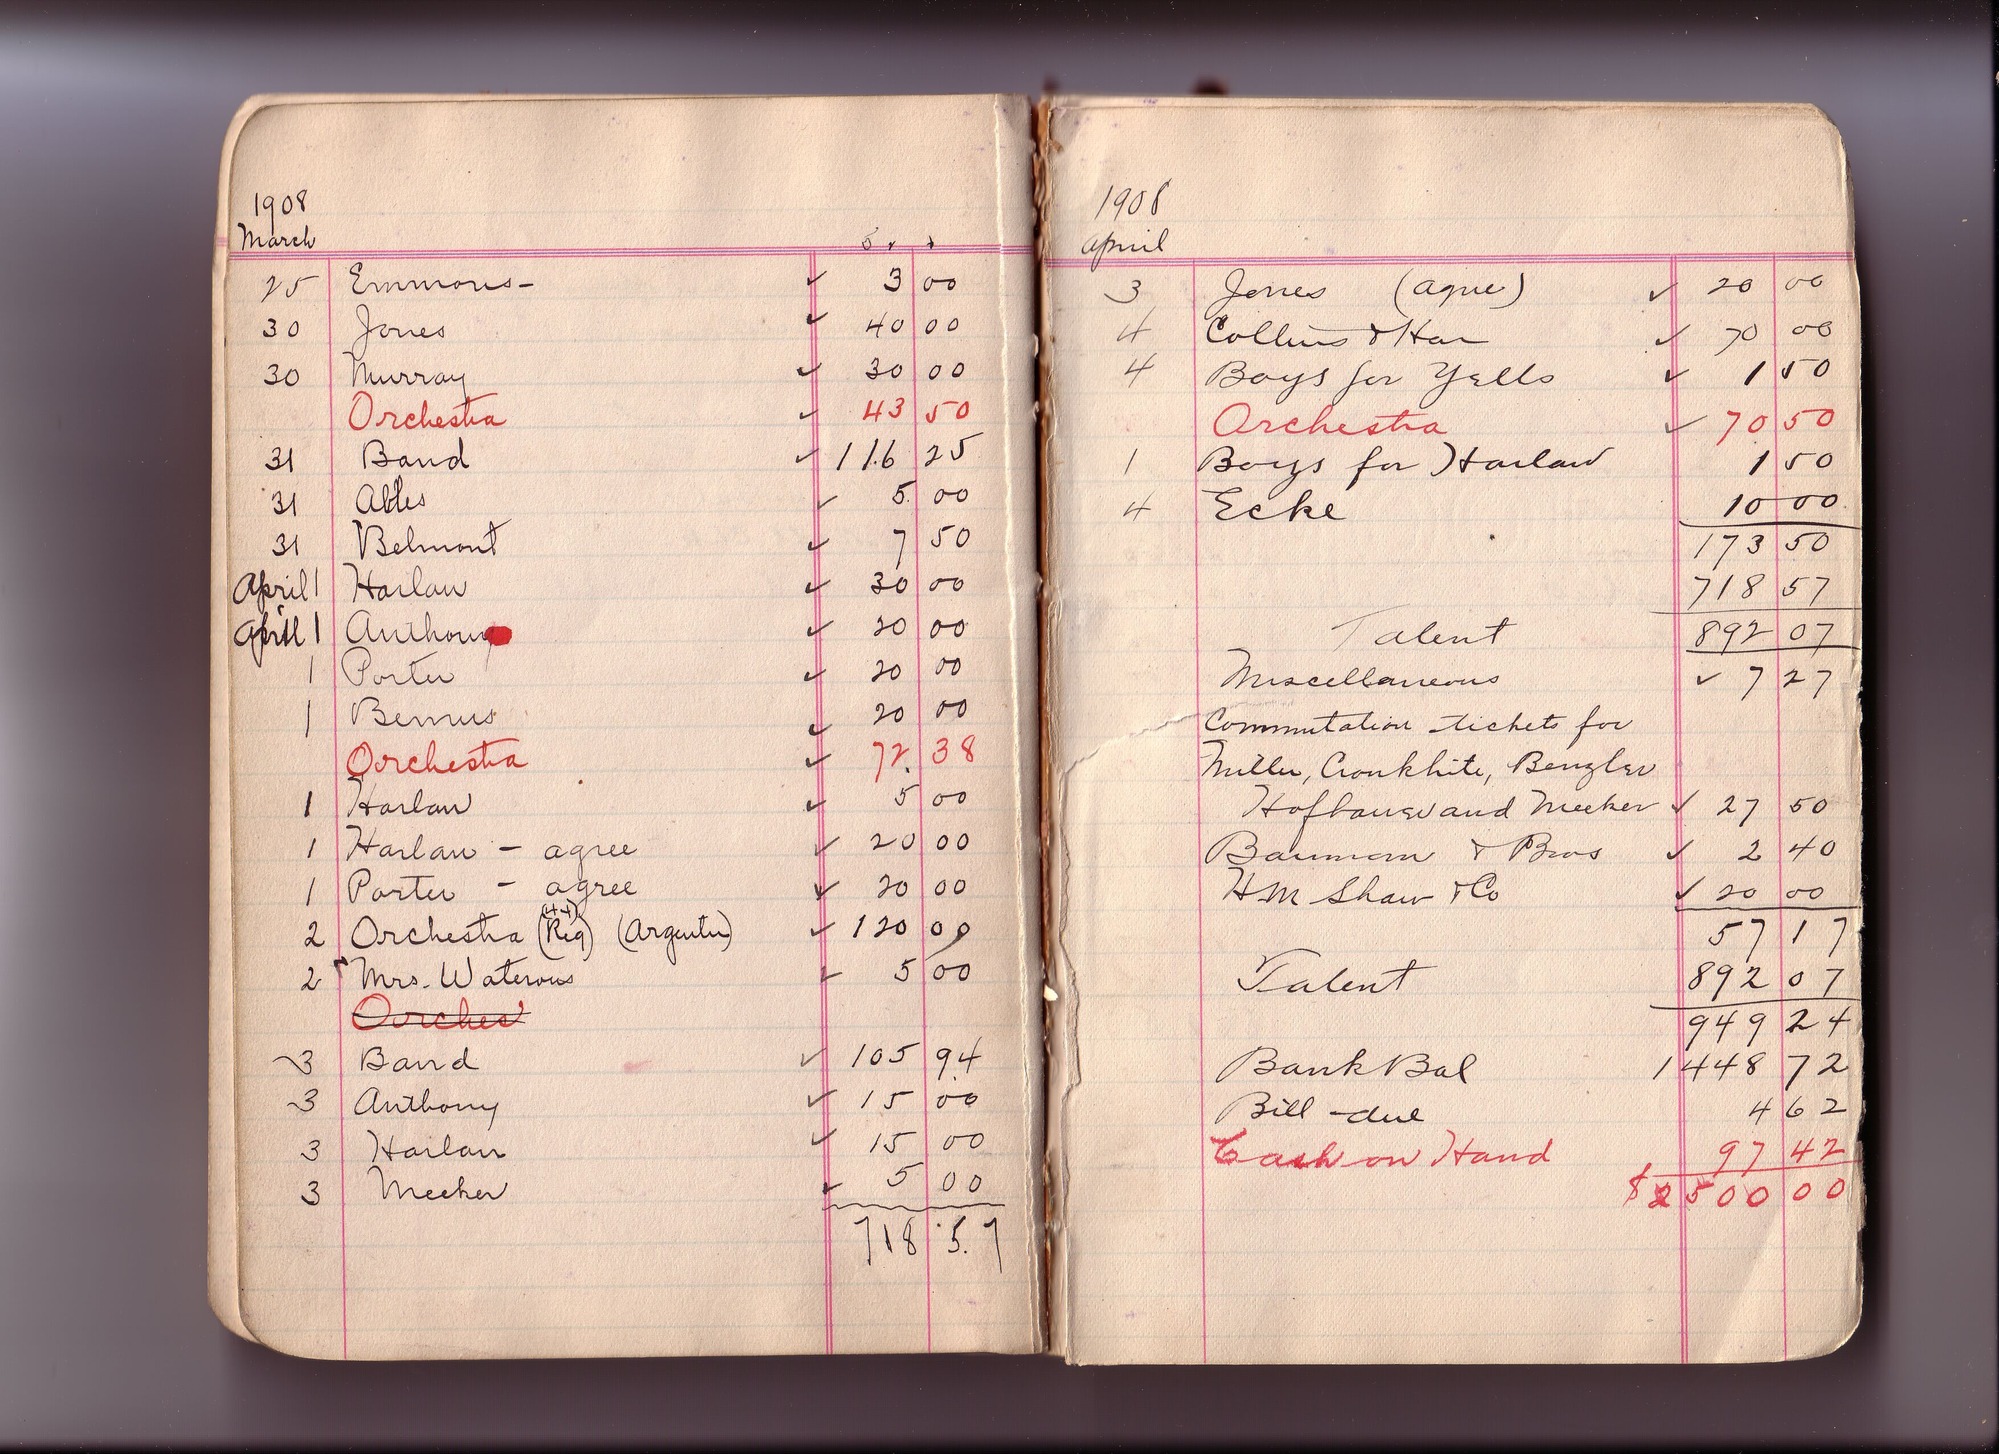 1908
March
25 Emmons- ✓ 3 00
30 Jones ✓ 40 00
30 Murray ✓ 30 00
Orchestra ✓ 43 50
31 Band ✓ 116 25
31 Ables ✓ 5 00
31 Belmont ✓ 7 50
April 1 Harlan ✓ 30 00
April 1 Anthony ✓ 20 00
1 Porter ✓ 20 00
1 Bemus ✓ 20 00
Orchestra ✓ 72. 38
1 Harlan ✓ 5 00
1 Harlan - agree ✓ 20 00
1 Porter - agree ✓ 20 00
2 Orchestra (Reg) (Argenter) ✓ 120 00
2 Mrs. Waterous ✓ 5 00
Orches
3 Band ✓ 105 94
3 Anthony ✓ 15 00
3 Harlan ✓ 15 00
3 Meeker ✓ 5 00
718 57
1908
April
3 Jones (agree) ✓ 20 00
4 Collins & Har ✓ 70 00
4 Boys for Yells ✓ 1 50
Orchestra ✓ 70 50
1 Boys for Harlan 1 50
4 Ecke 10 00
173 50
718 57
Talent 892 07
Miscellaneous ✓ 7 27
Commutation tickets for
Miller, Cronkhite, Benzler
Hofbauer and Meeker ✓ 27 50
Baumann & Bros ✓ 2 40
HM Shaw & Co ✓ 20 00
57 17
Talent 892 07
949 24
Bank Bal 1448 72
Bill - due 4 62
Cash on Hand 97 42
$2500 00